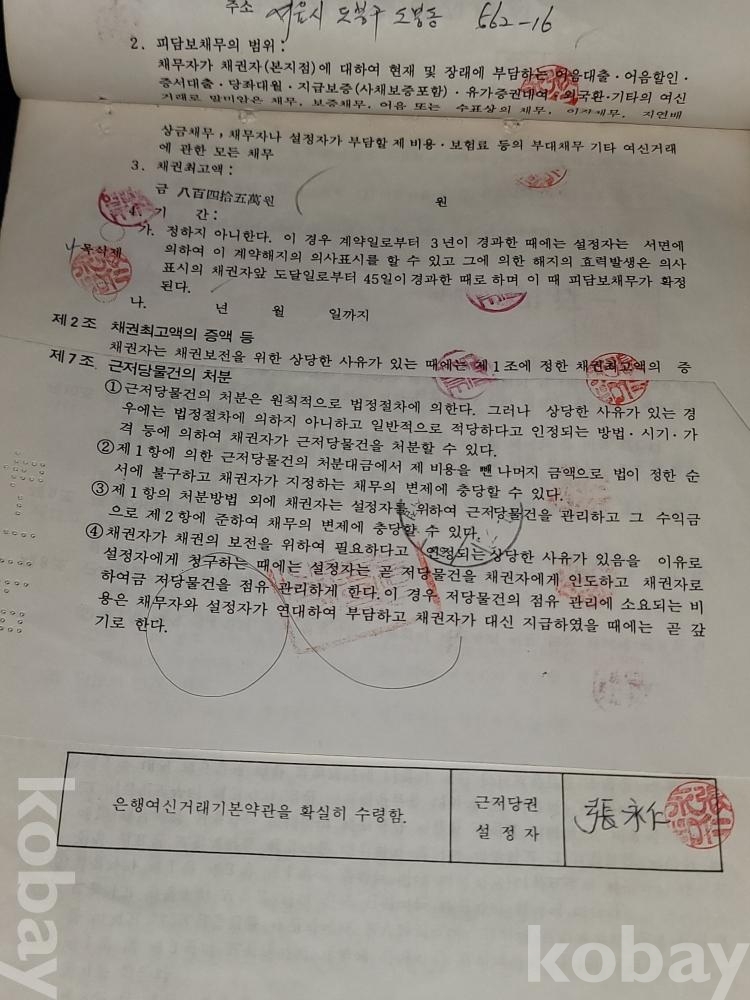 주소 서울시 도봉구 도봉동 562-16
2. 피담보채무의 범위:
채무자가 채권자(본지점)에 대하여 현재 및 장래에 부담하는 어음대출·어음할인·
증서대출·당좌대월·지급보증(사채보증포함)·유가증권대여·외국환·기타의 여신
거래로 말미암은 채무, 보증채무, 어음 또는 수표상의 채무, 이자채무, 지연배
상금채무, 채무자나 설정자가 부담할 제 비용·보험료 등의 부대채무 기타 여신거래
에 관한 모든 채무
3. 채권최고액:
금 八百四拾五萬원 원
4. 기 간:
가. 정하지 아니한다. 이 경우 계약일로부터 3년이 경과한 때에는 설정자는 서면에
나목삭제 의하여 이 계약해지의 의사표시를 할 수 있고 그에 의한 해지의 효력발생은 의사
표시의 채권자앞 도달일로부터 45일이 경과한 때로 하며 이 때 피담보채무가 확정
된다.
나. 년 월 일까지
제2조 채권최고액의 증액 등
채권자는 채권보전을 위한 상당한 사유가 있는 때에는 제1조에 정한 채권최고액의 증
제7조. 근저당물건의 처분
①근저당물건의 처분은 원칙적으로 법정절차에 의한다. 그러나 상당한 사유가 있는 경
우에는 법정절차에 의하지 아니하고 일반적으로 적당하다고 인정되는 방법·시기·가
격 등에 의하여 채권자가 근저당물건을 처분할 수 있다.
②제1항에 의한 근저당물건의 처분대금에서 제 비용을 뺀 나머지 금액으로 법이 정한 순
서에 불구하고 채권자가 지정하는 채무의 변제에 충당할 수 있다.
③제1항의 처분방법 외에 채권자는 설정자를 위하여 근저당물건을 관리하고 그 수익금
으로 제2항에 준하여 채무의 변제에 충당할 수 있다.
④채권자가 채권의 보전을 위하여 필요하다고 인정되는 상당한 사유가 있음을 이유로
설정자에게 청구하는 때에는 설정자는 곧 저당물건을 채권자에게 인도하고 채권자로
하여금 저당물건을 점유 관리하게 한다. 이 경우 저당물건의 점유 관리에 소요되는 비
용은 채무자와 설정자가 연대하여 부담하고 채권자가 대신 지급하였을 때에는 곧 갚
기로 한다.
은행여신거래기본약관을 확실히 수령함.
근저당권
설 정 자
張永仁
kobay
kobay